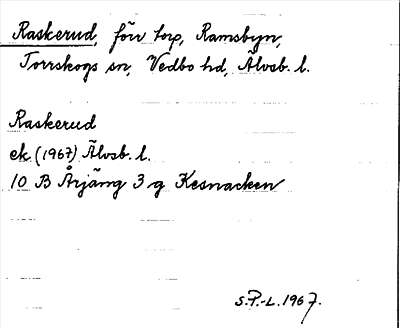 Raskerud, förr torp, Ramsbyn,
Torrskogs sn, Vedbo hd, Älvsb. l.
Raskerud
ek. (1967) Älvsb. l.
10 B Årjäng 3 g Kesnacken
S.P.-L. 1967.